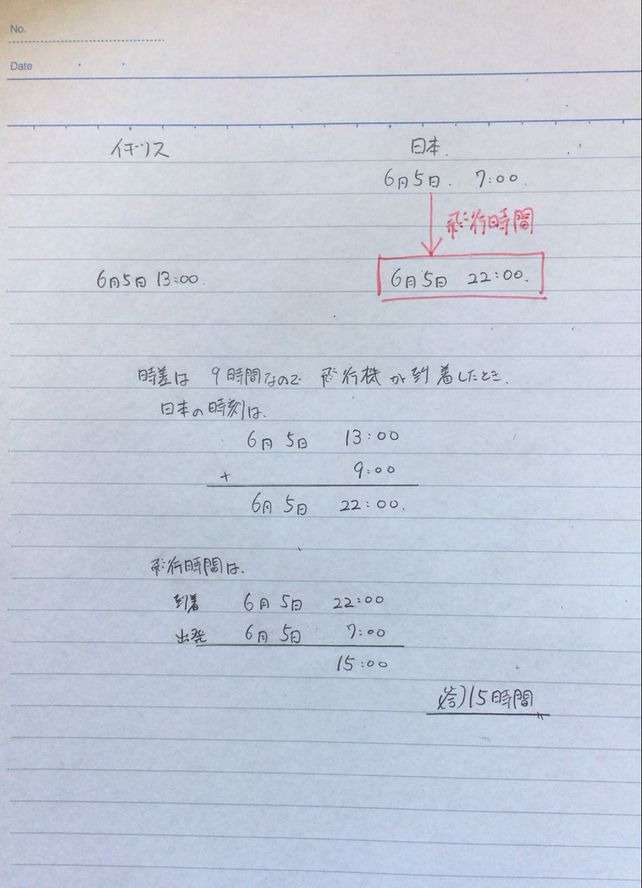 No.
Date
イギリス 日本.
6月5日. 7:00.
飛行時間
6月5日 13:00. 6月5日 22:00.
時差は 9時間なので 飛行機が到着したとき.
日本の時刻は.
6月5日 13:00
+ 9:00
6月5日 22:00.
飛行時間は.
到着 6月5日 22:00
出発 6月5日 7:00
15:00
答)15時間